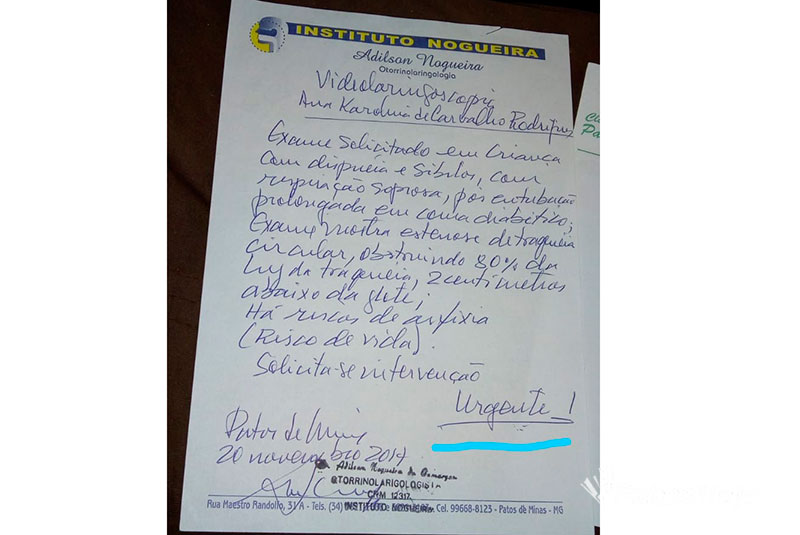 INSTITUTO NOGUEIRA
Adilson Nogueira
Otorrinolaringologia
Videolaringoscopia
Ana Karolina de Carvalho Rodrigues
Exame Solicitado em Criança
com dispneia e Sibilos, com
respiração Soprosa, pós entubação
prolongada em coma diabético;
Exame mostra estenose de traqueia
circular, obstruindo 80% da
luz da traqueia, 2 centímetros
abaixo da glote;
Há riscos de asfixia
(Risco de vida).
Solicita-se intervenção
Urgente !
Patos de Minas
20 novembro 2017
Adilson Nogueira de Camargos
OTORRINOLARIGOLOGISTA
CRM 12317
INSTITUTO NOGUEIRA
Rua Maestro Randolfo, 31 A - Tels. (34) Cel. 99668-8123 - Patos de Minas - MG